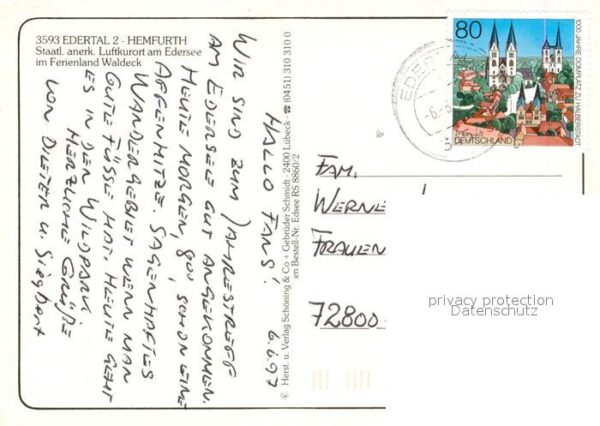 3593 EDERTAL 2 - HEMFURTH
Staatl. anerk. Luftkurort am Edersee
im Ferienland Waldeck
6.6.97
HALLO FANS!
WIR SIND ZUM JAHRESTREFF
AM EDERSEE GUT ANGEKOMMEN.
HEUTE MORGEN, 8⁰⁰, SCHON EINE
AFFENHITZE. SAGENHAFTES
WANDERGEBIET WENN MAN
GUTE FÜSSE HAT. HEUTE GEHT
ES IN DEN WILDPARK
HERZLICHE GRÜßE
VON DIETER U. Siegbert
© Herst. u. Verlag Schöning & Co + Gebrüder Schmidt · 2400 Lübeck · ☎ (0451) 310 310 0
en Bestell-Nr. Edsee RS 8860/2
EDER
80
1000 JAHRE DOMPLATZ ZU HALBERSTADT
DEUTSCHLAND
FAM.
WERNE
FRAUEN
72800
privacy protection
Datenschutz